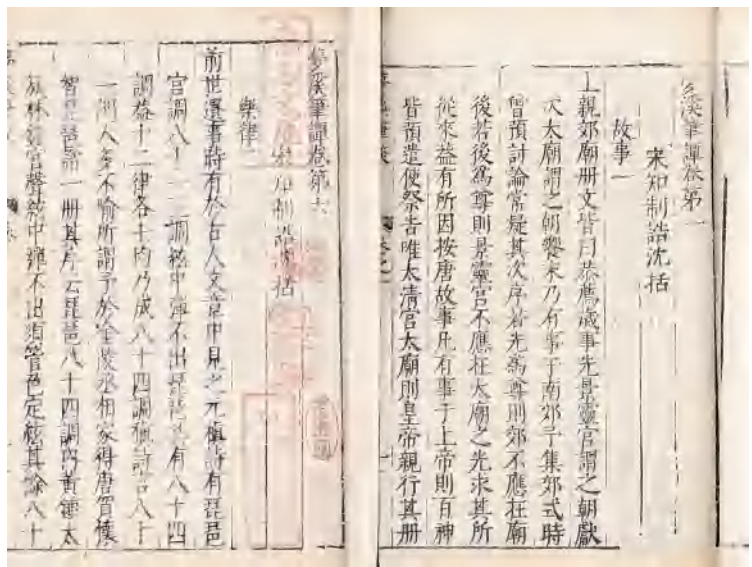 夢溪筆談卷第一
宋知制誥沈括
故事一
上親郊廟冊文皆曰恭薦歲事先景靈宮謂之朝獻
次太廟謂之朝饗末乃有事于南郊予集郊式時
曾預討論常疑其次序若先為尊則郊不應在廟
後若後為尊則景靈宮不應在太廟之先求其所
從來蓋有所因按唐故事凡有事于上帝則百神
皆預遣使祭告唯太清宮太廟則皇帝親行其冊
夢溪筆談卷第六
宋知制誥沈括
樂律二
前世遺事時有於古人文章中見之元稹詩有琵琶
宮調八十一三調絃中彈不出琵琶共有八十四
調蓋十二律各七均乃成八十四調稹詩言八十
一調人多不喻所謂予於金陵丞相家得唐賀懷
智琵琶譜一冊其序云琵琶八十四調內黃鍾太
蔟林鍾宮聲絃中彈不出須管色定絃其餘八十